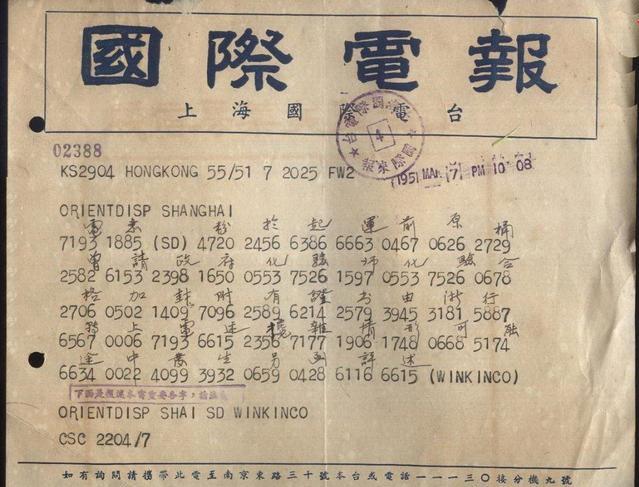 國際電報
上海國際電台
02388
KS2904 HONGKONG 55/51 7 2025 FW2
1951 MAR 7 PM 10 08
4
ORIENTDISP SHANGHAI
電悉 粉於起運前原桶
7193 1885 (SD) 4720 2456 6386 6663 0467 0626 2729
曾請政府化驗師化驗合
2582 6153 2398 1650 0553 7526 1597 0553 7526 0678
格加封附有證书由浙行
2706 0502 1409 7096 2589 6214 2579 3945 3181 5887
上電述攪雜情形可能
6567 0006 7193 6615 2356 7177 1906 1748 0668 5174
途中發生另函詳述
6634 0022 4099 3932 0659 0428 6116 6615 (WINKINCO)
ORIENTDISP SHAI SD WINKINCO
CSC 2204/7
如有詢問請攜帶此電至南京東路三十號本台或電話一一一三〇接分機九號